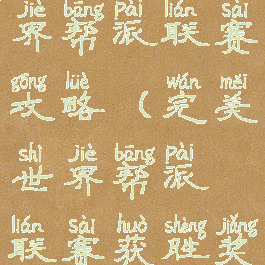 jiè bāng Pài lián sài
界帮派联赛
gōng lüè wán měi
攻略(完美
shì jiè bāng Pài
世界帮派
lián sài huò shèng jiǎng
联赛获胜奖